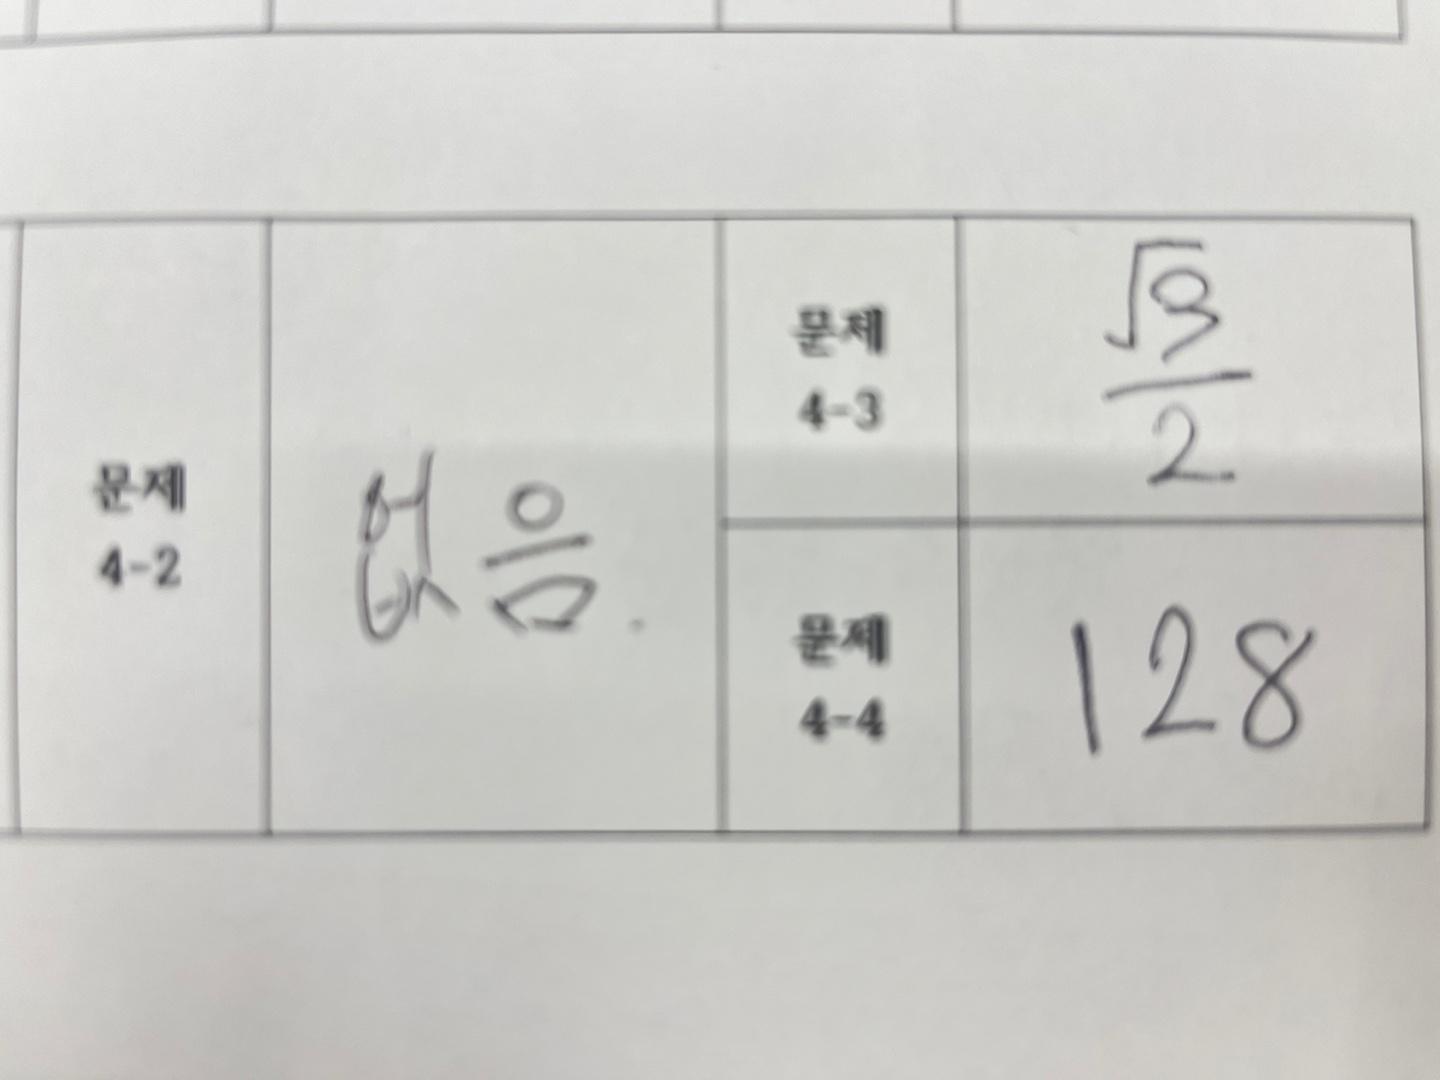 문제
4-2
없음.
문제
4-3
√3
2
문제
4-4
128